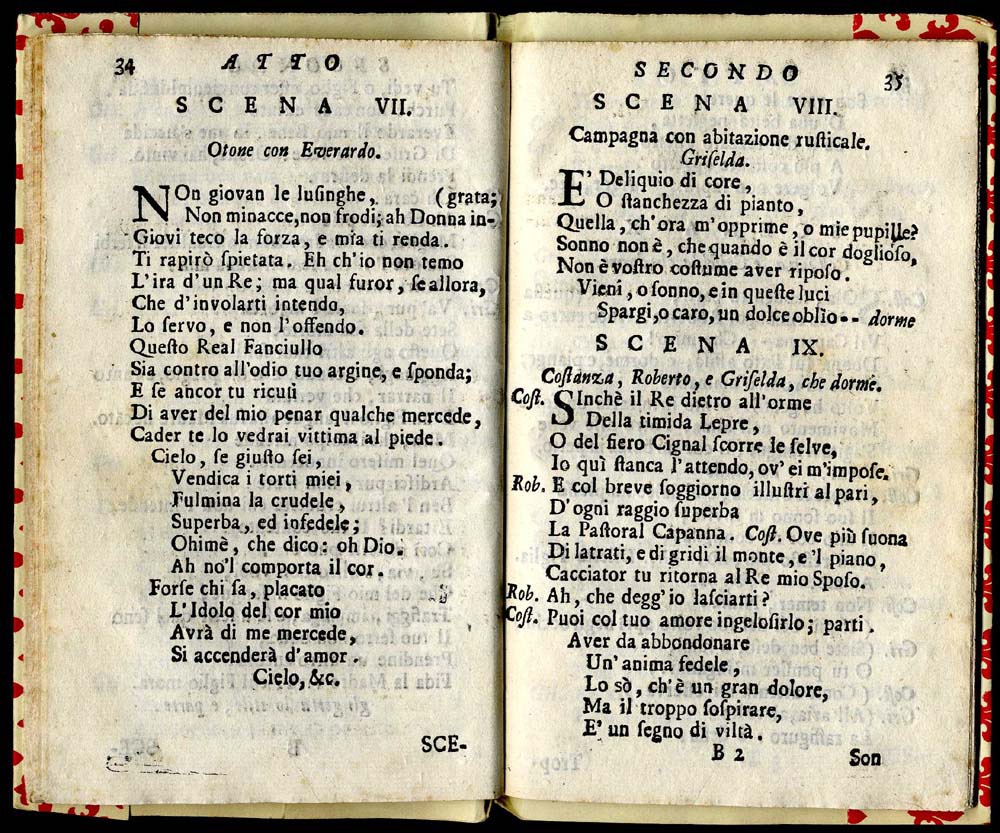 34 ATTO
SCENA VII.
Otone con Everardo.
NOn giovan le luſinghe, (grata;
Non minacce, non frodi; ah Donna in-
Giovi teco la forza, e mia ti renda.
Ti rapirò ſpietata. Eh ch'io non temo
L'ira d'un Re; ma qual furor, ſe allora,
Che d'involarti intendo,
Lo ſervo, e non l'offendo.
Queſto Real Fanciullo
Sia contro all'odio tuo argine, e ſponda;
E ſe ancor tu ricuſi
Di aver del mio penar qualche mercede,
Cader te lo vedrai vittima al piede.
Cielo, ſe giuſto ſei,
Vendica i torti miei,
Fulmina la crudele,
Superba, ed infedele;
Ohimè, che dico: oh Dio.
Ah no'l comporta il cor.
Forſe chi ſa, placato
L'Idolo del cor mio
Avrà di me mercede,
Si accenderà d'amor.
Cielo, &c.
SCE-
SECONDO 35
SCENA VIII.
Campagna con abitazione ruſticale.
Griſelda.
E' Deliquio di core,
O ſtanchezza di pianto,
Quella, ch'ora m'opprime, o mie pupille?
Sonno non è, che quando è il cor doglioſo,
Non è voſtro coſtume aver ripoſo.
Vieni, o ſonno, e in queſte luci
Spargi, o caro, un dolce oblìo-- dorme
SCENA IX.
Coſtanza, Roberto, e Griſelda, che dorme.
Coſt. SInchè il Re dietro all'orme
Della timida Lepre,
O del fiero Cignal ſcorre le ſelve,
Io quì ſtanca l'attendo, ov'ei m'impoſe.
Rob. E col breve ſoggiorno illuſtri al pari,
D'ogni raggio ſuperba
La Paſtoral Capanna. Coſt. Ove più ſuona
Di latrati, e di gridi il monte, e'l piano,
Cacciator tu ritorna al Re mio Spoſo.
Rob. Ah, che degg'io laſciarti?
Coſt. Puoi col tuo amore ingeloſirlo; parti.
Aver da abbondonare
Un'anima fedele,
Lo sò, ch'è un gran dolore,
Ma il troppo ſoſpirare,
E' un ſegno di viltà.
B 2 Son